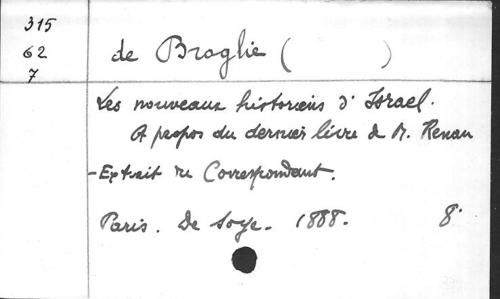 315
62
7
de Broglie (          )
Les nouveaux historiens d'Israel.
A propos du dernier livre de M. Renan
- Extrait du Correspondant.
Paris. De Soye. 1888. 8°